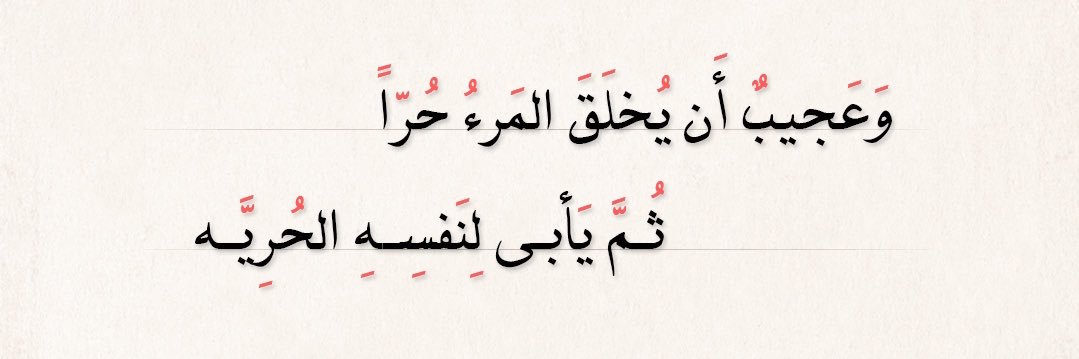 وَعَجيبٌ أَن يُخلَقَ المَرءُ حُرّاً
ثُـمَّ يَأبـى لِنَفسِـهِ الحُرِيَّـه